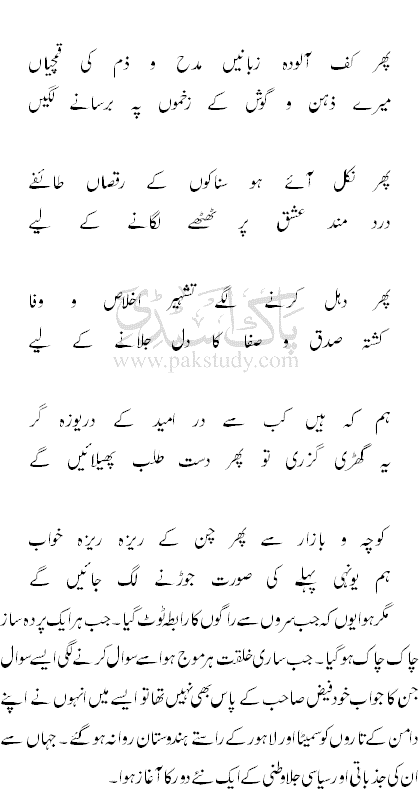 پھر کف آلودہ زبانیں مدح و ذم کی قمچیاں
میرے ذہن و گوش کے زخموں پہ برسانے لگیں
پھر نکل آئے ہو سناکوں کے رقصاں طائفے
درد مند عشق پر ٹھٹھے لگانے کے لیے
پھر دہل کرنے لگے تشہیر اخلاص و وفا
کشتہ صدق و صفا کا دل جلانے کے لیے
پاک سٹڈی
www.pakstudy.com
ہم کہ ہیں کب سے در امید کے دریوزہ گر
یہ گھڑی گزری تو پھر دست طلب پھیلائیں گے
کوچہ و بازار سے پھر چن کے ریزہ ریزہ خواب
ہم یونہی پہلے کی صورت جوڑنے لگ جائیں گے
مگر ہوا یوں کہ جب سروں سے راگوں کا رابطہ ٹوٹ گیا۔ جب ہر ایک پردہ ساز
چاک چاک ہو گیا۔ جب ساری خلقت ہر موج ہوا سے سوال کرنے لگی ایسے سوال
جن کا جواب خود فیض صاحب کے پاس بھی نہیں تھا تو ایسے میں انہوں نے اپنے
دامن کے تاروں کو سمیٹا اور لاہور کے راستے ہندوستان روانہ ہو گئے۔ جہاں سے
ان کی جذباتی اور سیاسی جلاوطنی کے ایک نئے دور کا آغاز ہوا۔